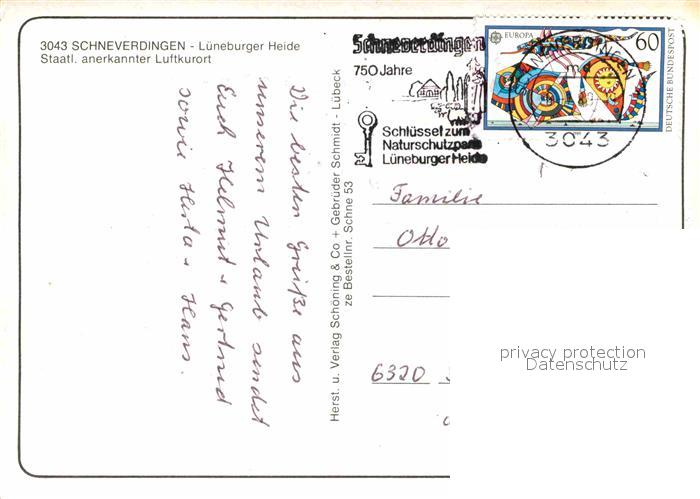 3043 SCHNEVERDINGEN - Lüneburger Heide
Staatl. anerkannter Luftkurort
Die besten Grüße aus
unserem Urlaub sendet
Euch Helmut + Gertrud
sowie Herta + Hans.
Herst. u. Verlag Schöning & Co + Gebrüder Schmidt - Lübeck
ze Bestellnr. Schne 53
Schneverdingen
750 Jahre
Schlüssel zum
Naturschutzpark
Lüneburger Heide
EUROPA
60
DEUTSCHE BUNDESPOST
SCHNEVERDINGEN
ma
3043
Familie
Otto
6320
privacy protection
Datenschutz